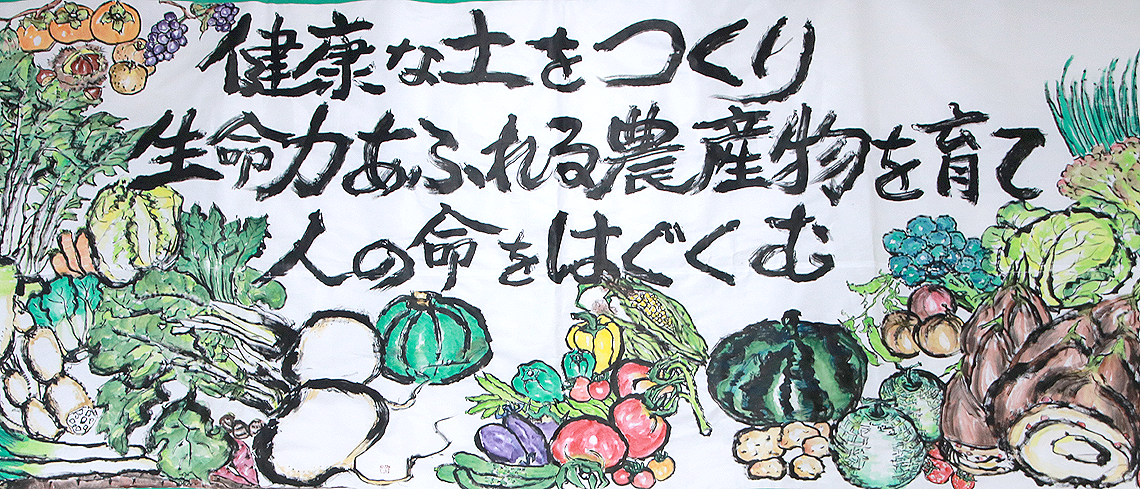 健康な土をつくり
生命力あふれる農産物を育て
人の命をはぐくむ